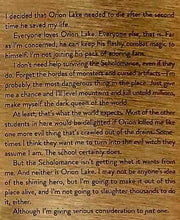 I decided that Orion Lake needed to die after the second
time he saved my life.
Everyone loves Orion Lake. Everyone else, that is. Far
as I'm concerned, he can keep his flashy combat magic to
himself. I'm not joining his pack of adoring fans.
I don't need help surviving the Scholomance, even if they
do. Forget the hordes of monsters and cursed artifacts—I'm
probably the most dangerous thing in the place. Just give
me a chance and I'll level mountains and kill untold millions,
make myself the dark queen of the world.
At least, that's what the world expects. Most of the other
students in here would be delighted if Orion killed me like
one more evil thing that's crawled out of the drains. Some-
times I think they want me to turn into the evil witch they
assume I am. The school certainly does.
But the Scholomance isn't getting what it wants from
me. And neither is Orion Lake. I may not be anyone's idea
of the shining hero, but I'm going to make it out of this
place alive, and I'm not going to slaughter thousands to do
it, either.
Although I'm giving serious consideration to just one.